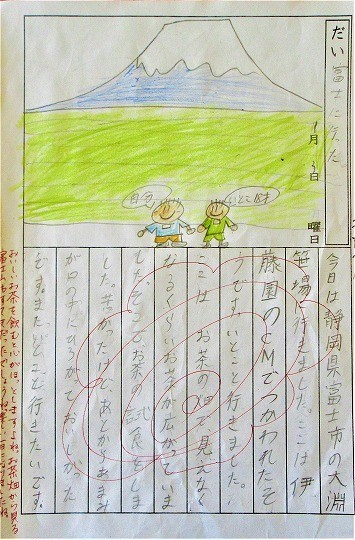 だい 富士に行た
月 日 曜日
自分
いとこ
今日は静岡県富士市の大淵
笹場に行きました。ここは伊
藤園のCMでつかわれたそ
うです。いとこと行きました。
ここは、お茶の畑で、見えなく
なるくらいお茶が広がっていま
した。そこで、お茶の試食をしま
した。苦かったけど、あとからあまみ
が口の中にひろがっておいしかった
です。また、いとこと行きたいです。
おいしいお茶を飲むと心がほっとしますよね。お茶畑から見る
富士山もすてきだったでしょうね。